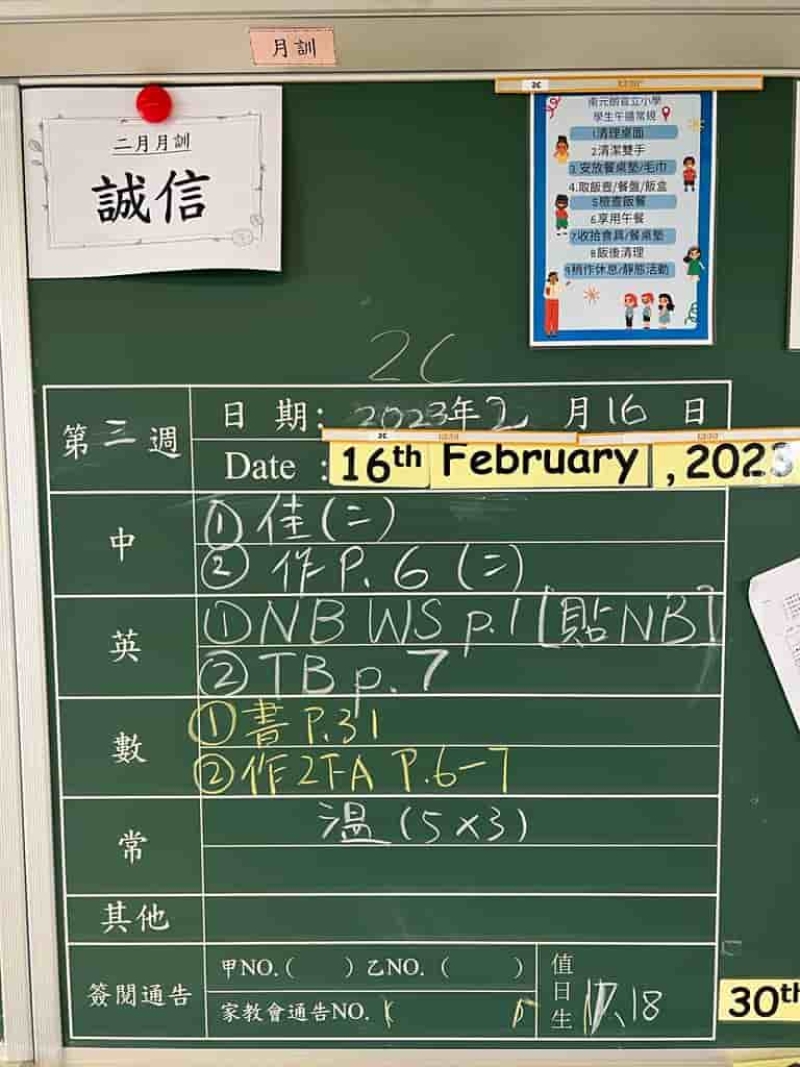 月訓
二月月訓
誠信
2C
學生午膳常規
1.清理桌面
2.清潔雙手
3.安放餐桌墊/毛巾
4.取飯壼/餐盤/飯盒
5檢查飯餐
6.享用午餐
7收拾食具/餐桌墊
8飯後清理
9稍作休息/靜態活動
2C
第三週
日期：2023年2月16日
Date : 16th February, 2023
中
① 佳(二)
② 作P. 6 (二)
英
① NB WS p.1 [貼NB]
② TB p. 7
數
① 書 P.31
② 作2下A P.6-7
常
溫 (5×3)
其他
簽閱通告
甲NO. (    ) 乙NO. (    )
家教會通告NO. (    )
值日生
17、18
30th